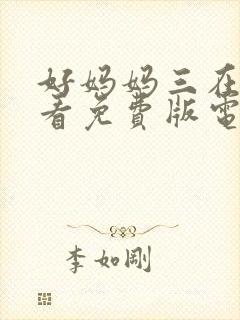 好妈妈三在
看免費版電
李如剛